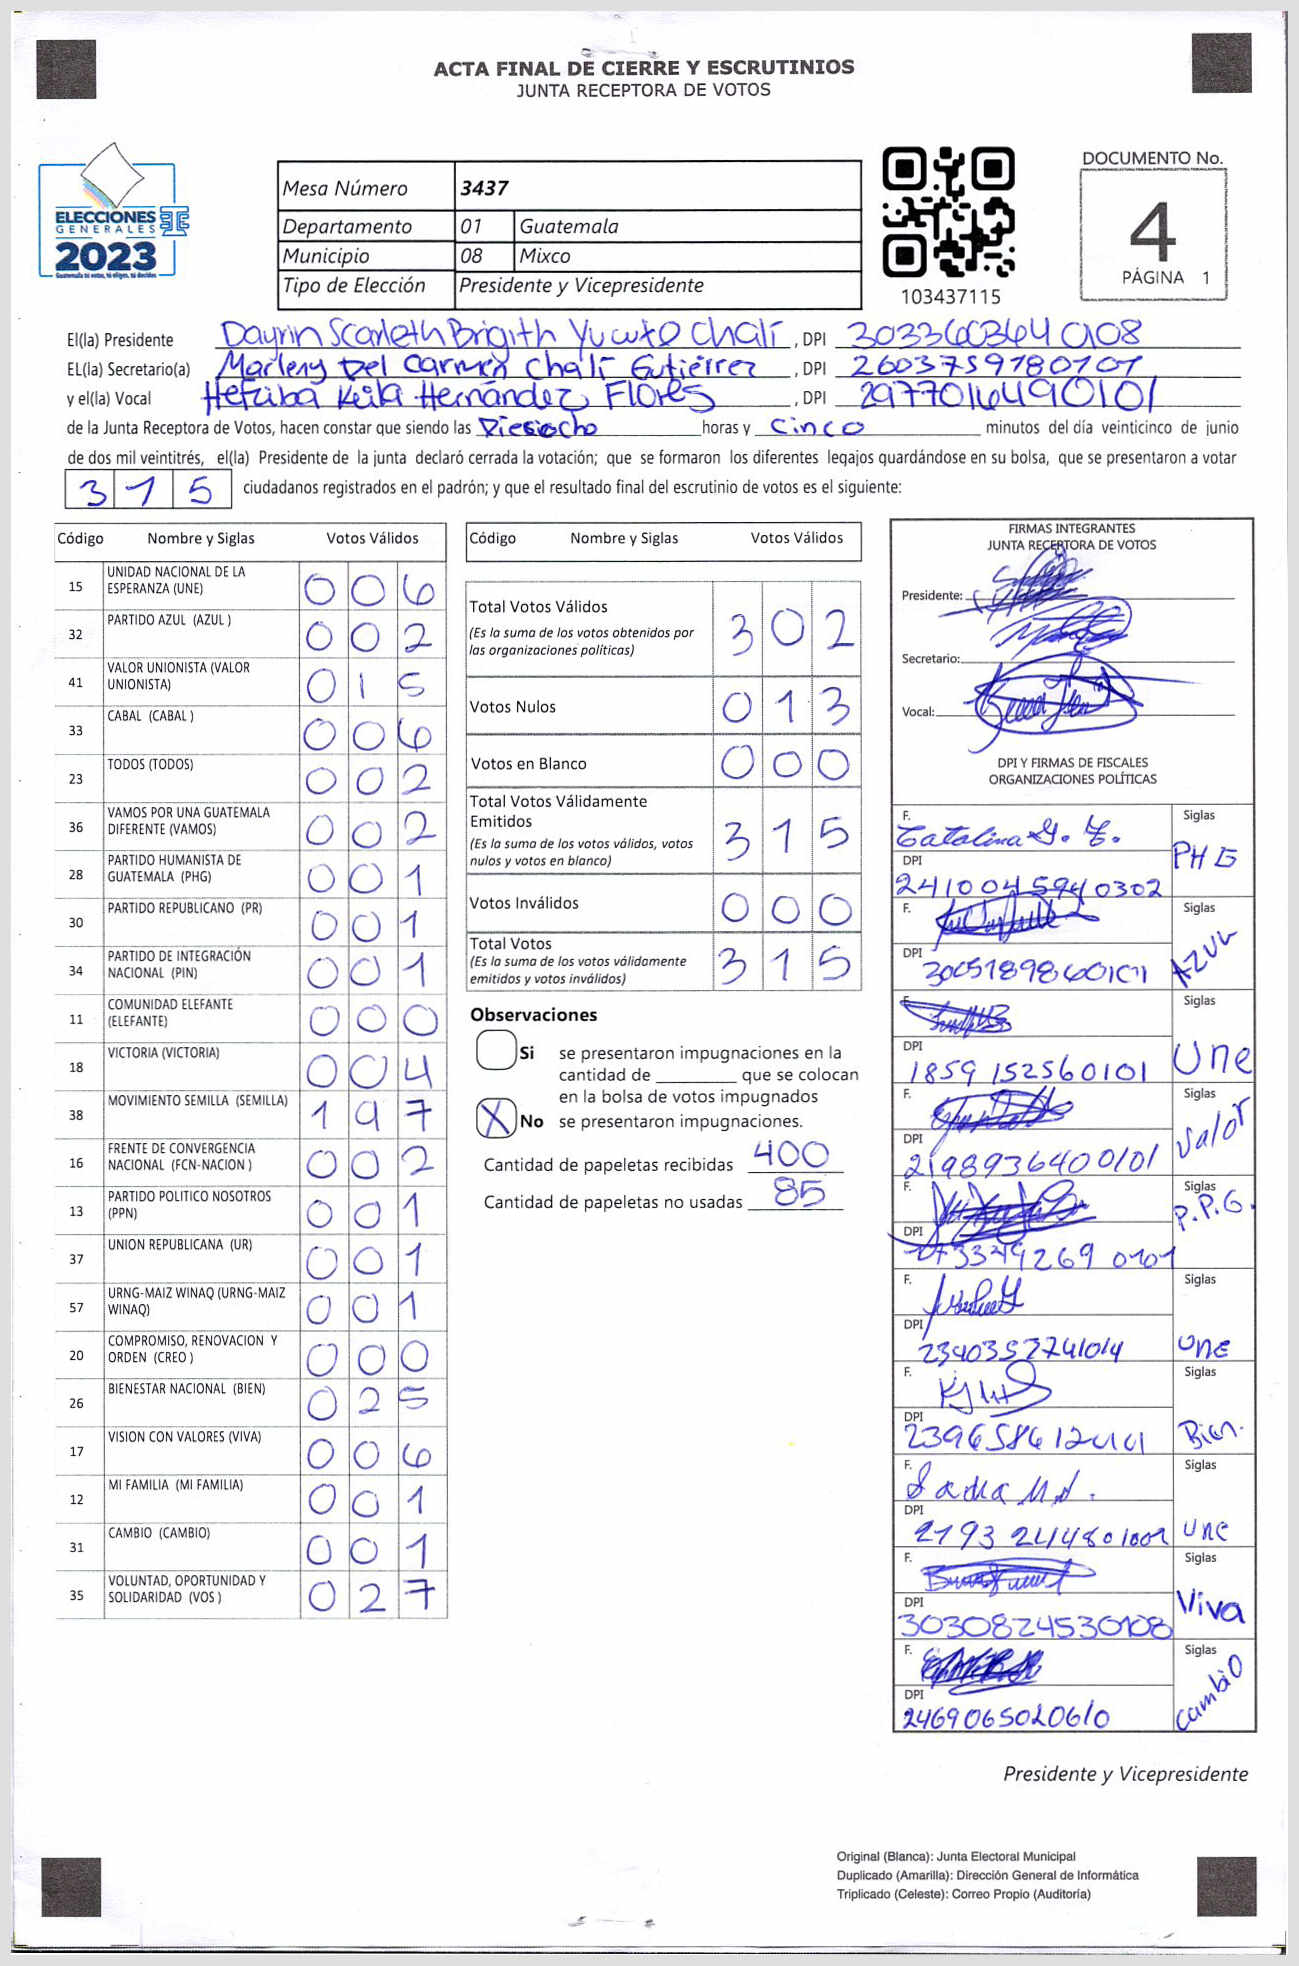 ACTA FINAL DE CIERRE Y ESCRUTINIOS
JUNTA RECEPTORA DE VOTOS
ELECCIONES
GENERALES
2023
Mesa Número 3437
Departamento 01 Guatemala
Municipio 08 Mixco
Tipo de Elección Presidente y Vicepresidente
103437115
DOCUMENTO No.
4
PÁGINA 1
El(la) Presidente Dayrin Scarleth Brigith Yucuté Chalí, DPI
EL(la) Secretario(a) Marleny Del Carmen Chalí Gutiérrez, DPI 2603759780101
y el(la) Vocal Hefziba Keila Hernández Flores, DPI 2977016490101
de la Junta Receptora de Votos, hacen constar que siendo las Dieciocho horas y Cinco minutos del día veinticinco de junio
de dos mil veintitrés, el(la) Presidente de la junta declaró cerrada la votación; que se formaron los diferentes legajos guardándose en su bolsa, que se presentaron a votar
315 ciudadanos registrados en el padrón; y que el resultado final del escrutinio de votos es el siguiente:
Código Nombre y Siglas Votos Válidos
15 UNIDAD NACIONAL DE LA ESPERANZA (UNE) 006
32 PARTIDO AZUL (AZUL ) 002
41 VALOR UNIONISTA (VALOR UNIONISTA) 015
33 CABAL (CABAL ) 006
23 TODOS (TODOS) 002
36 VAMOS POR UNA GUATEMALA DIFERENTE (VAMOS) 002
28 PARTIDO HUMANISTA DE GUATEMALA (PHG) 001
30 PARTIDO REPUBLICANO (PR) 001
34 PARTIDO DE INTEGRACIÓN NACIONAL (PIN) 001
11 COMUNIDAD ELEFANTE (ELEFANTE) 000
18 VICTORIA (VICTORIA) 004
38 MOVIMIENTO SEMILLA (SEMILLA) 197
16 FRENTE DE CONVERGENCIA NACIONAL (FCN-NACION ) 002
13 PARTIDO POLITICO NOSOTROS (PPN) 001
37 UNION REPUBLICANA (UR) 001
57 URNG-MAIZ WINAQ (URNG-MAIZ WINAQ) 001
20 COMPROMISO, RENOVACION Y ORDEN (CREO ) 000
26 BIENESTAR NACIONAL (BIEN) 025
17 VISION CON VALORES (VIVA) 006
12 MI FAMILIA (MI FAMILIA) 001
31 CAMBIO (CAMBIO) 001
35 VOLUNTAD, OPORTUNIDAD Y SOLIDARIDAD (VOS ) 027
Código Nombre y Siglas Votos Válidos
Total Votos Válidos 302
(Es la suma de los votos obtenidos por
las organizaciones políticas)
Votos Nulos 013
Votos en Blanco 000
Total Votos Válidamente
Emitidos 315
(Es la suma de los votos válidos, votos
nulos y votos en blanco)
Votos Inválidos 000
Total Votos 315
(Es la suma de los votos válidamente
emitidos y votos inválidos)
Observaciones
Si se presentaron impugnaciones en la
cantidad de ________ que se colocan
en la bolsa de votos impugnados
X No se presentaron impugnaciones.
Cantidad de papeletas recibidas 400
Cantidad de papeletas no usadas 85
FIRMAS INTEGRANTES
JUNTA RECEPTORA DE VOTOS
Presidente:
Secretario:
Vocal:
DPI Y FIRMAS DE FISCALES
ORGANIZACIONES POLÍTICAS
F. Catalina Siglas
DPI 2410045940302 PHG
F. Siglas
DPI AZUL
F. Siglas
DPI 1859152560101 Une
F. Siglas
DPI 2198936400101 Valor
F. Siglas
DPI P.P.G.
F. Siglas
DPI 2340357741014 UNE
F. Siglas
DPI Bien.
F. Siglas
DPI UNE
F. Siglas
DPI 3030824530108 Viva
F. Siglas
DPI 2469065020610 Cambio
Presidente y Vicepresidente
Original (Blanca): Junta Electoral Municipal
Duplicado (Amarilla): Dirección General de Informática
Triplicado (Celeste): Correo Propio (Auditoría)